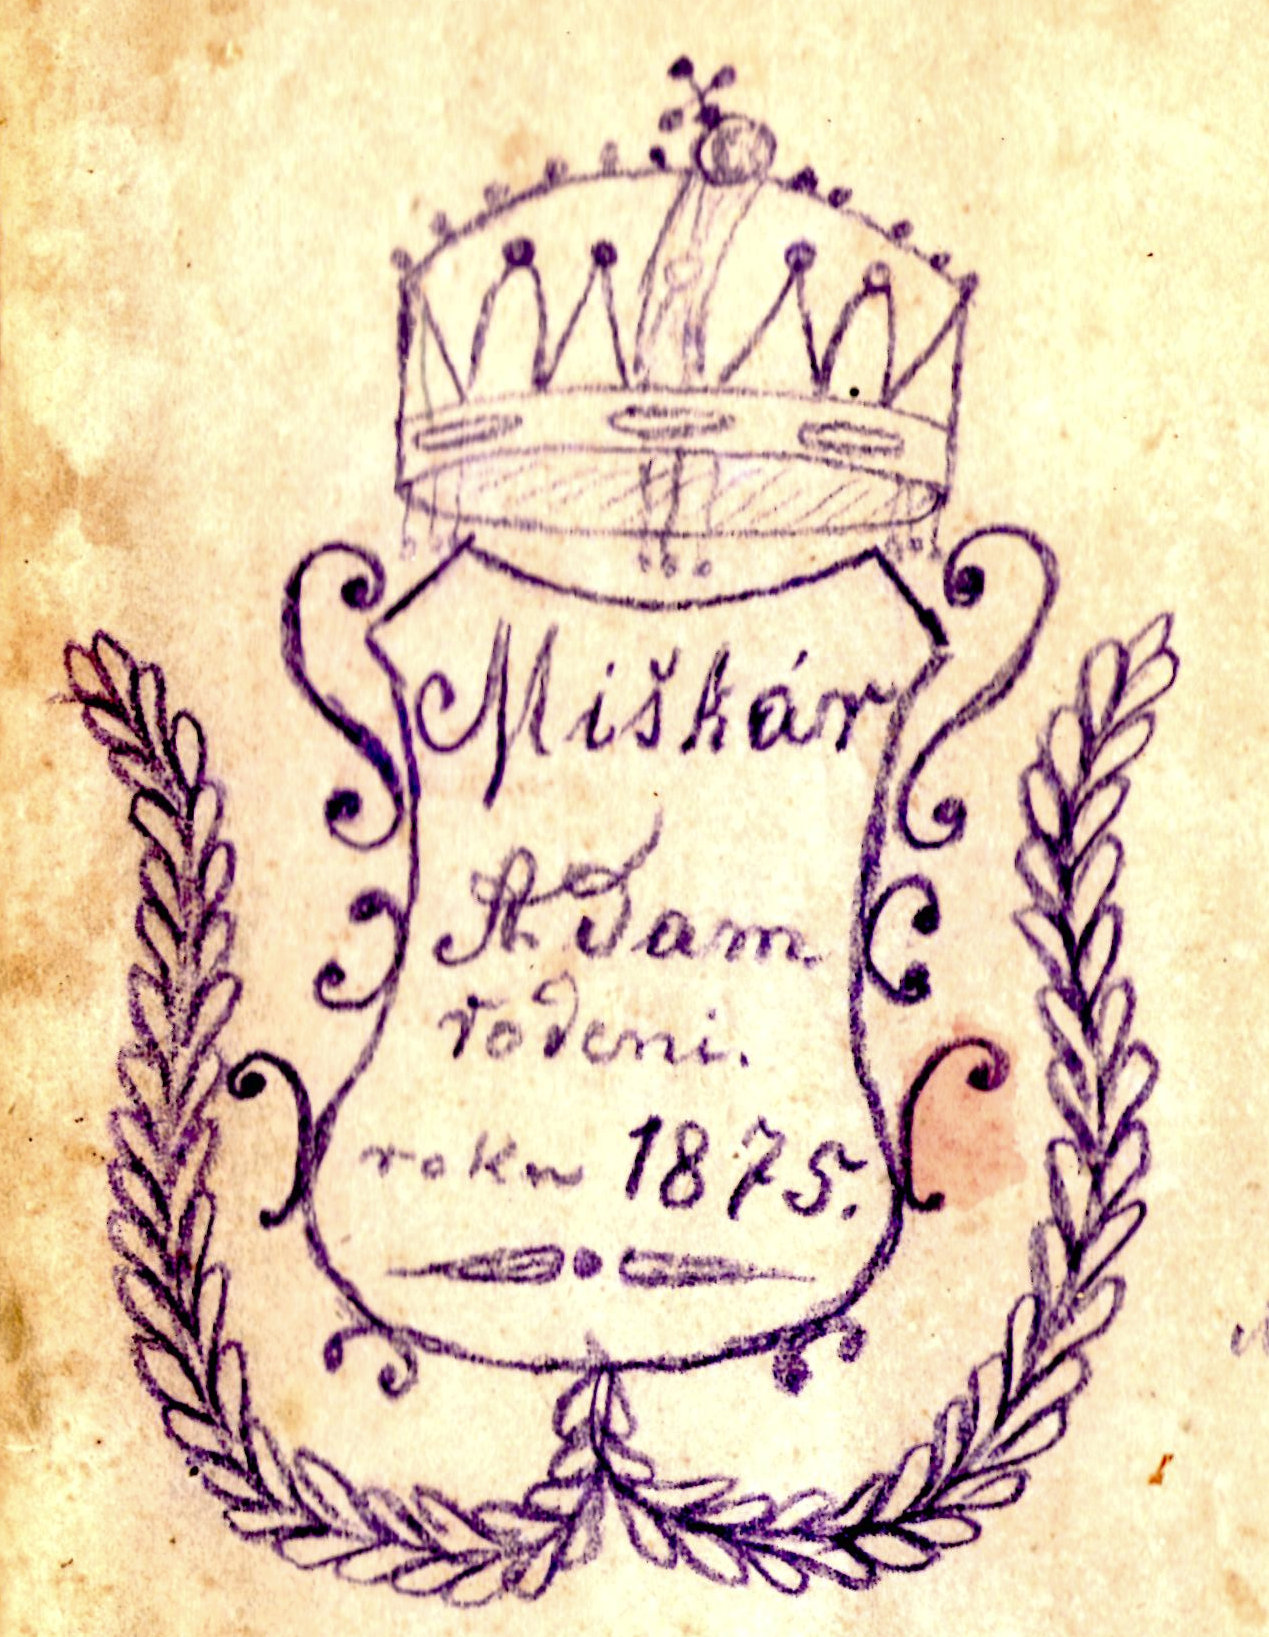 Miškár
Adam
rodeni.
roku 1875.